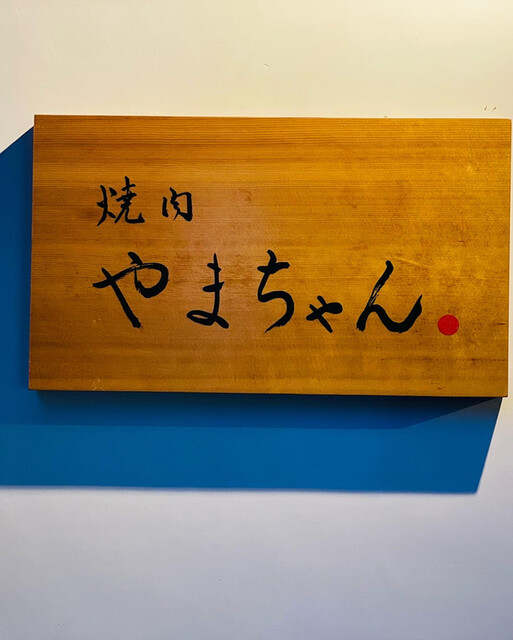 焼肉
やまちゃん